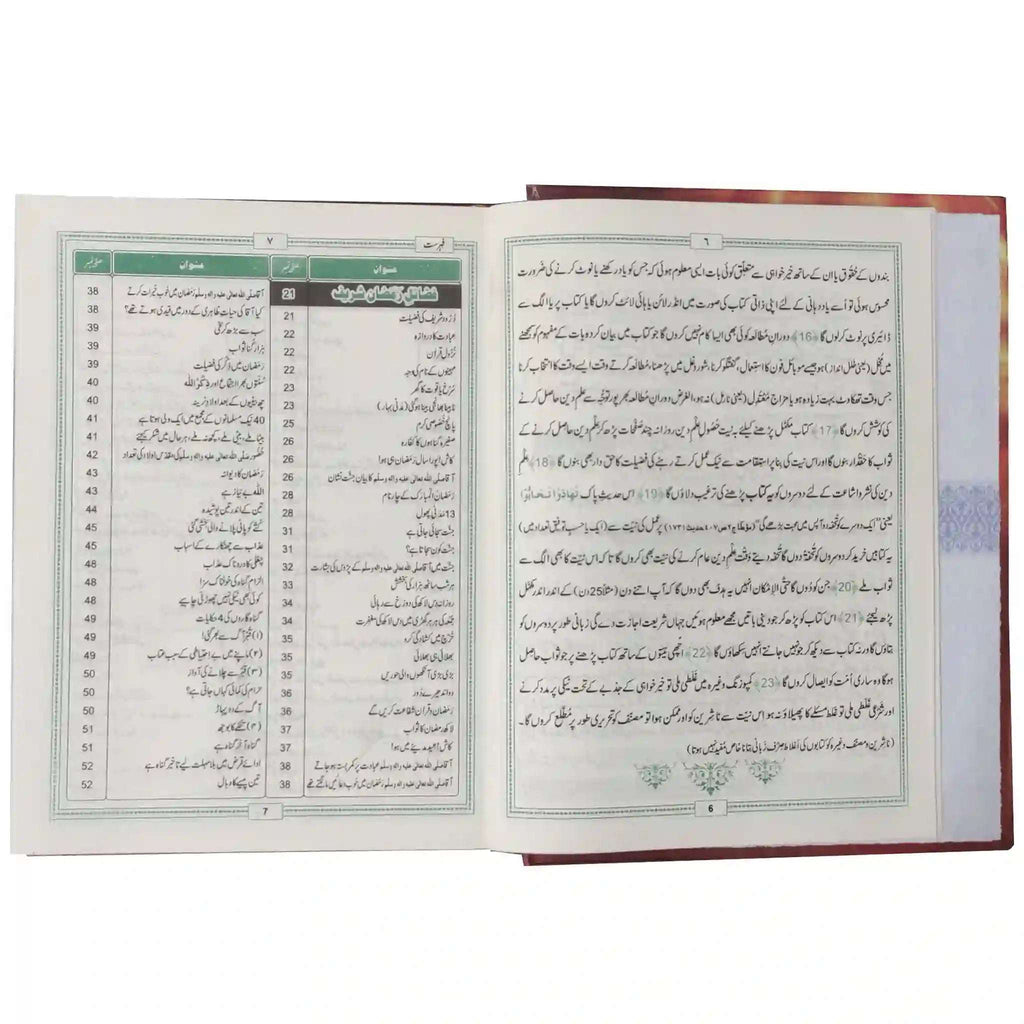 ٦
بندوں کے حُقوق یا ان کے ساتھ خیر خواہی سے متعلق کوئی بات ایسی معلوم ہوئی کہ جس کو یاد رکھنے یا نوٹ کرنے کی ضرورت
محسوس ہوئی تو اُسے یاد دہانی کے لئے اپنی ذاتی کتاب کی صورت میں انڈر لائن یا ہائی لائٹ کروں گا یا کتاب پر یا الگ سے
ڈائیری پر نوٹ کر لوں گا ﴿16﴾ دورانِ مُطالعہ کوئی بھی ایسا کام نہیں کروں گا جو کتاب میں بیان کردہ بات کے مفہوم کو سمجھنے
میں مُخِل (یعنی خلل انداز) ہو جیسے موبائل فون کا استعمال، گفتگو کرنا، شور و غل میں پڑھنا، مُطالعہ کرتے وقت ایسے وقت کا انتخاب کرنا
جس وقت تھکاوٹ بہت زیادہ ہو یا مزاج مُعْتَدِل (یعنی نارمل) نہ ہو، الغرض دورانِ مطالعہ بھرپور توجُّہ سے علمِ دین حاصل کرنے
کی کوشش کروں گا ﴿17﴾ کتاب مکمَّل پڑھنے کیلئے بہ نیّتِ حُصولِ علمِ دین روزانہ چند صفحات پڑھ کر عِلْمِ دین حاصل کرنے کے
ثواب کا حقدار بنوں گا اور اس نیت کی بنا پر استقامت سے نیک عمل کرتے رہنے کی فضیلت کا حق دار بھی بنوں گا ﴿18﴾ عِلْمِ
دین کی نشر و اشاعت کے لئے دوسروں کو یہ کتاب پڑھنے کی ترغیب دلاؤں گا ﴿19﴾ اس حدیثِ پاک تَهَادَوْا تَحَابُّوْا
یعنی ”ایک دوسرے کو تحفہ دو آپس میں محبت بڑھے گی“ (مؤطا ج ٢ ص ٤٠٧ حدیث ١٧٣١) پر عمل کی نیّت سے (ایک یا حسبِ توفیق تعداد میں)
یہ کتابیں خرید کر دوسروں کو تحفۃً دوں گا تحفہ دیتے وقت علمِ دین عام کرنے کی نیت بھی کروں گا تاکہ اس نیت کا بھی الگ سے
ثواب ملے ﴿20﴾ جن کو دوں گا حتَّی الاِمکان انہیں یہ ہدف بھی دوں گا کہ آپ اتنے دن (مثلاً 25 دن) کے اندر اندر مکمَّل
پڑھ لیجئے ﴿21﴾ اس کتاب کو پڑھ کر جو دینی باتیں مجھے معلوم ہوئیں جہاں شریعت اجازت دے گی زبانی طور پر دوسروں کو
بتاؤں گا ورنہ کتاب سے دیکھ کر جو نہیں جانتے انہیں سکھاؤں گا ﴿22﴾ اچّھی نیّتوں کے ساتھ کتاب پڑھنے پر جو ثواب حاصل
ہوگا وہ ساری اُمّت کو ایصال کروں گا ﴿23﴾ کمپوزنگ وغیرہ میں غَلَطی ملی تو خیر خواہی کے جذبے کے تحت نیکی پر مدد کرنے
اور شرعی غَلَطی ملی تو غلط مسئلے کا پھیلاؤ نہ ہو اس نیت سے ناشرین کو اور ممکن ہوا تو مصنّف کو تحریری طور پر مُطَّلع کروں گا۔
(ناشرین و مصنف وغیرہ کو کتابوں کی اَغلاط صِرف زَبانی بتانا خاص مُفید نہیں ہوتا)
6
فہرست
٧
عنوان صفحہ نمبر
فضائل رمضان شریف 21
دُرُود شریف کی فضیلت 21
عبادت کا دروازہ 22
نُزولِ قُران 22
مہینوں کے نام کی وجہ 22
سُرخ یاقوت کا گھر 23
نابینا بھانجی بینا ہو گئی (مدنی بہار) 23
پانچ خُصوصی کرم 25
صغیرہ گناہوں کا کفّارہ 26
کاش! پورا سال رَمَضان ہی ہو! 26
آقا صلی اللہ تعالٰی علیہ والہٖ وسلم کا بیانِ جنت نشان 26
رَمَضانُ المبارَک کے چار نام 28
13 مدنی پھول 28
جنّت سجائی جاتی ہے 31
جنت کون سجاتا ہے؟ 31
جنت میں آقا صلی اللہ تعالٰی علیہ والہٖ وسلم کے پڑوس کی بشارت 32
ہر شب ساٹھ ہزار کی بخشش 33
روزانہ دس لاکھ کی دوزخ سے رہائی 34
جُمعہ کی ہر ہر گھڑی میں دس لاکھ کی مغفرت 34
خَرچ میں کُشادَگی کرو 35
بھلائی ہی بھلائی 35
بڑی بڑی آنکھوں والی حوریں 35
دو اندھیرے دُور 36
رمضان و قران شفاعت کریں گے 36
لاکھ رمضان کا ثواب 37
کاش! عید مدینے میں ہو! 37
آقا صلی اللہ تعالٰی علیہ والہٖ وسلم عبادت پر کمر بستہ ہو جاتے 38
آقا صلی اللہ تعالٰی علیہ والہٖ وسلم رَمَضان میں خوب دعائیں مانگتے تھے 38
عنوان صفحہ نمبر
آقا صلی اللہ تعالٰی علیہ والہٖ وسلم رَمَضان میں خوب خیرات کرتے 38
کیا آقا کی حیاتِ ظاہری کے دور میں قیدی ہوتے تھے؟ 38
سب سے بڑھ کر سخی 39
ہزار گُنا ثواب 39
رَمَضان میں ذِکْر کی فضیلت 39
سنّتوں بھرا اجتماع اور ذِکْرُ اللہ 40
چھ بیٹیوں کے بعد اولادِ نرینہ 40
40 نیک مسلمانوں کے مجمع میں ایک ولی ہوتا ہے 41
بیٹا ملے، بیٹی ملے، کچھ نہ ملے، ہر حال میں شکر کیجئے 41
حُضُور صلی اللہ تعالٰی علیہ والہٖ وسلم کی مقدّس اولاد کی تعداد 42
رَمَضان کا دیوانہ 43
اللہ بے نیاز ہے 43
تین کے اندر تین پوشیدہ 44
کتّے کو پانی پلانے والی بخشی گئی 45
عذاب سے چھٹکارے کے اسباب 45
چُغلی کا دردناک عذاب 48
اِلزامِ گناہ کی خوفناک سزا 48
کوئی بھی نیکی نہیں چھوڑنی چاہیے 48
گناہ گاروں کی 4 حکایات 49
(١) قبر آگ سے بھر گئی! 49
(٢) ماپنے میں بے احتیاطی کے سبب عتاب 49
(٣) قبر سے چلّانے کی آواز 50
حرام کی کمائی کہاں جاتی ہے؟ 50
آگ کے دو پہاڑ 50
(٤) تنکے کا بوجھ 51
گناہ آخر گناہ ہے 51
ادائے قرض میں بلا مہلت لیے تاخیر گناہ ہے 52
تین پیسے کا وبال 52
7